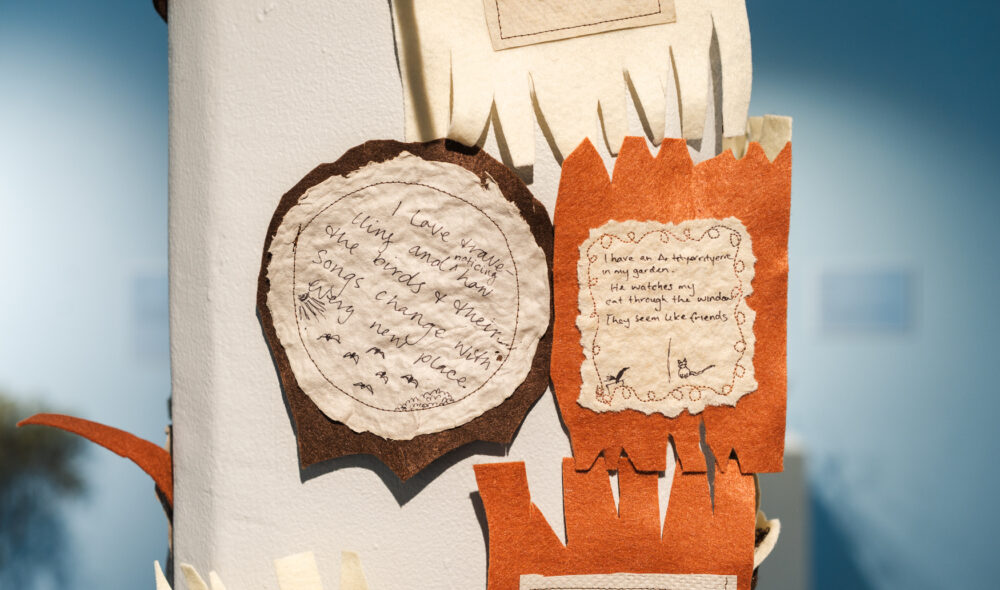 I love trave-
lling and noticing how
the birds & their
songs change with
every new place.
I have an
in my garden.
He watches my
cat through the window
They seem like friends